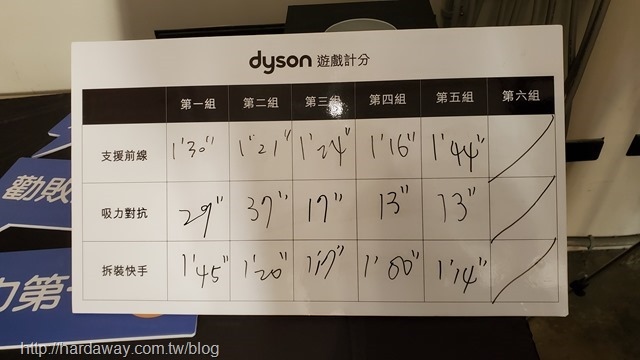 dyson 遊戲計分
第一組 第二組 第三組 第四組 第五組 第六組
支援前線 1'30" 1'21" 1'24" 1'16" 1'44"
吸力對抗 29" 37" 17" 13" 13"
拆裝快手 1'45" 1'20" 1'17" 1'00" 1'14"
勸敗
力第一
http://hardaway.com.tw/blog